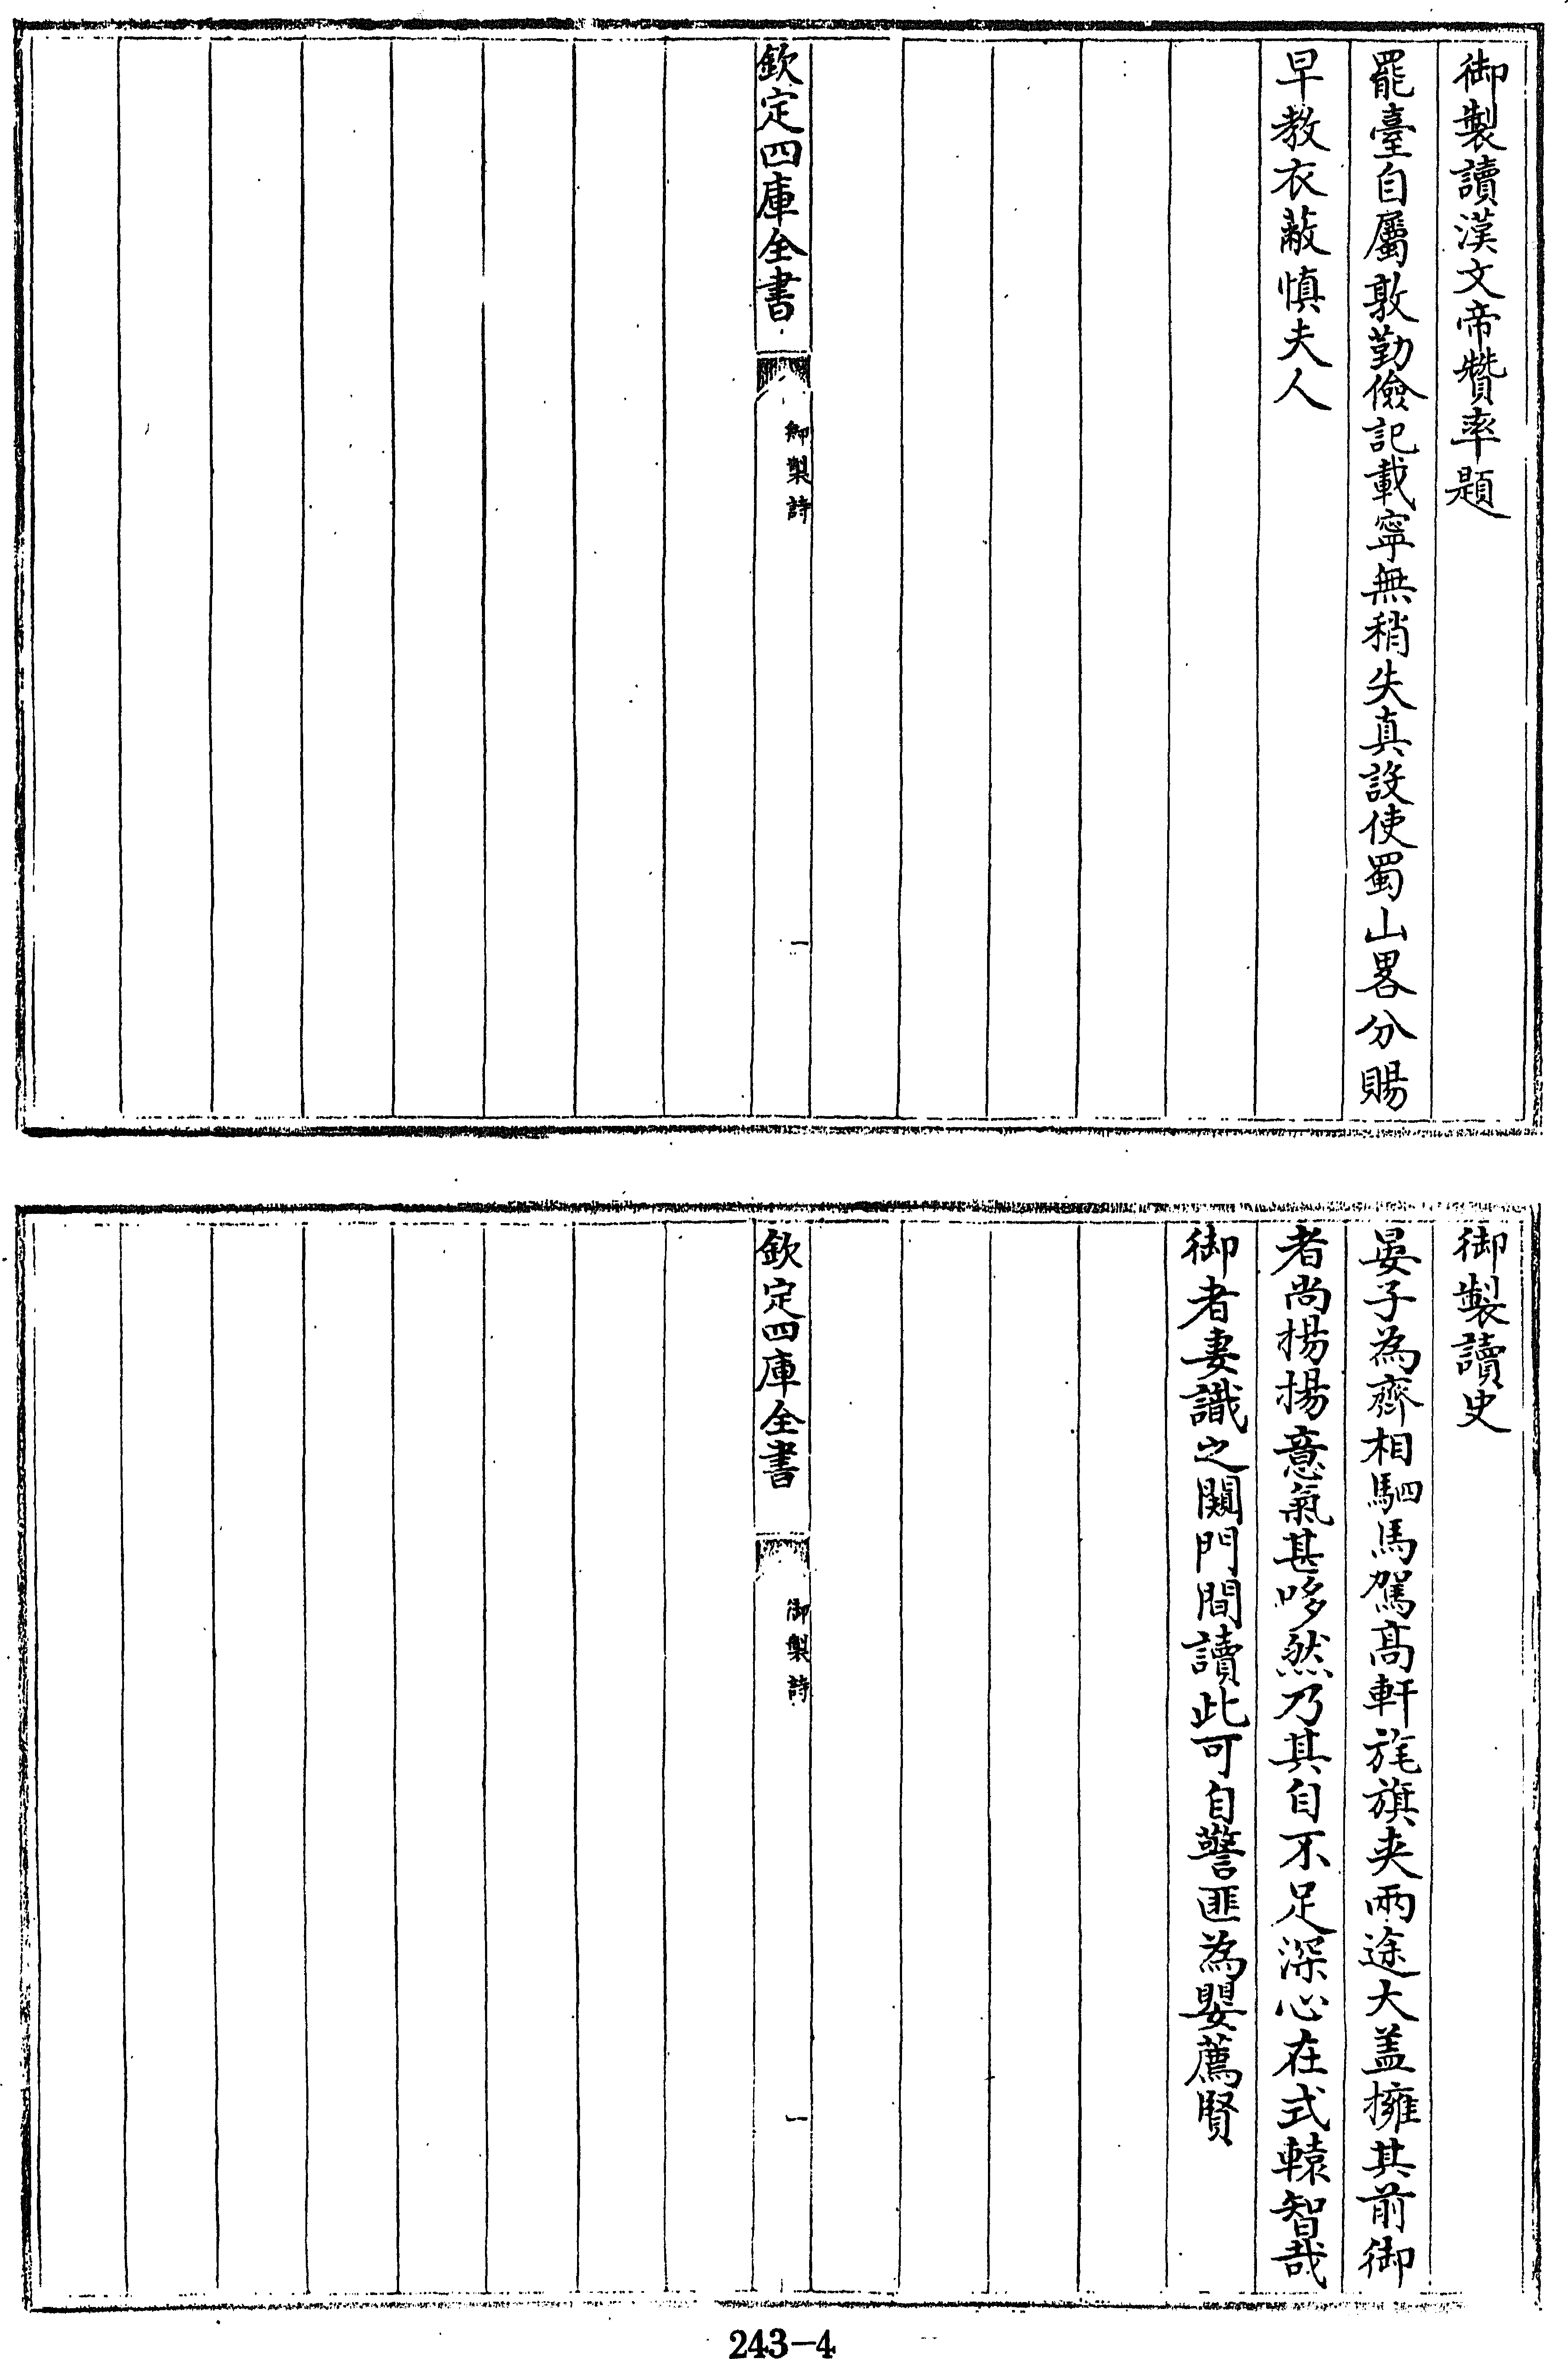 御製讀漢文帝贊率題
罷臺自屬敦勤儉記載寧無稍失真設使蜀山畧分賜
早教衣蔽慎夫人
欽定四庫全書
御製詩
一
御製讀史
晏子為齊相駟馬駕髙軒旄旗夾兩途大盖擁其前御
者尚揚揚意氣甚哆然乃其自不足深心在式轅智哉
御者妻識之闚門間讀此可自警匪為嬰薦賢
欽定四庫全書
御製詩
一
243-4